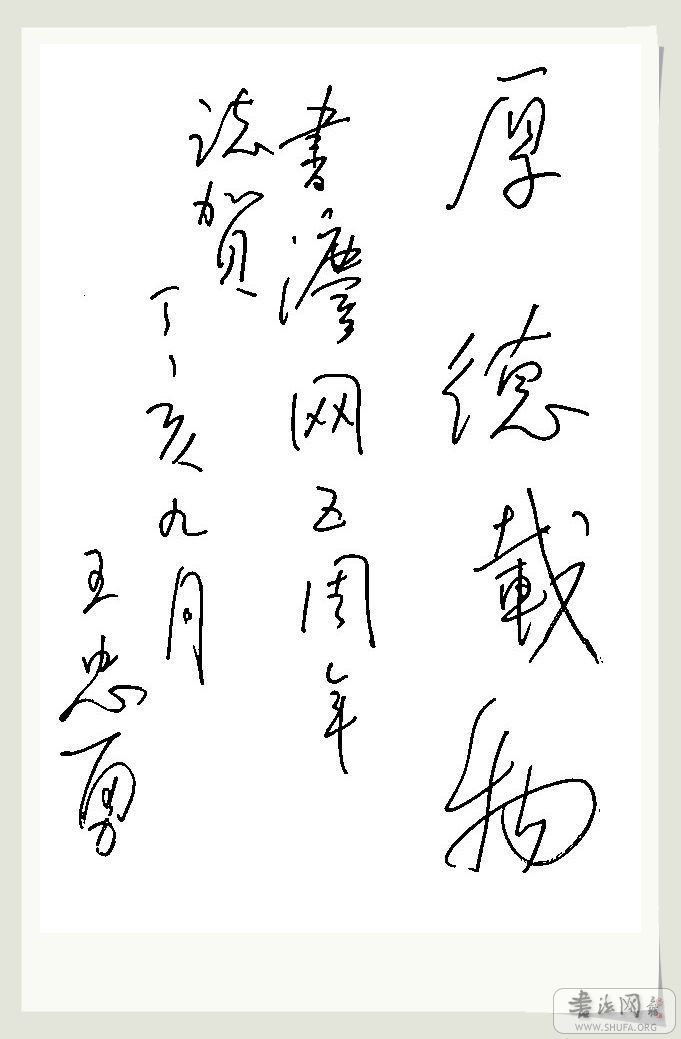 厚德載物
書灋网五周年
誌賀
丁亥九月
王忠勇
書法网
WWW.SHUFA.ORG